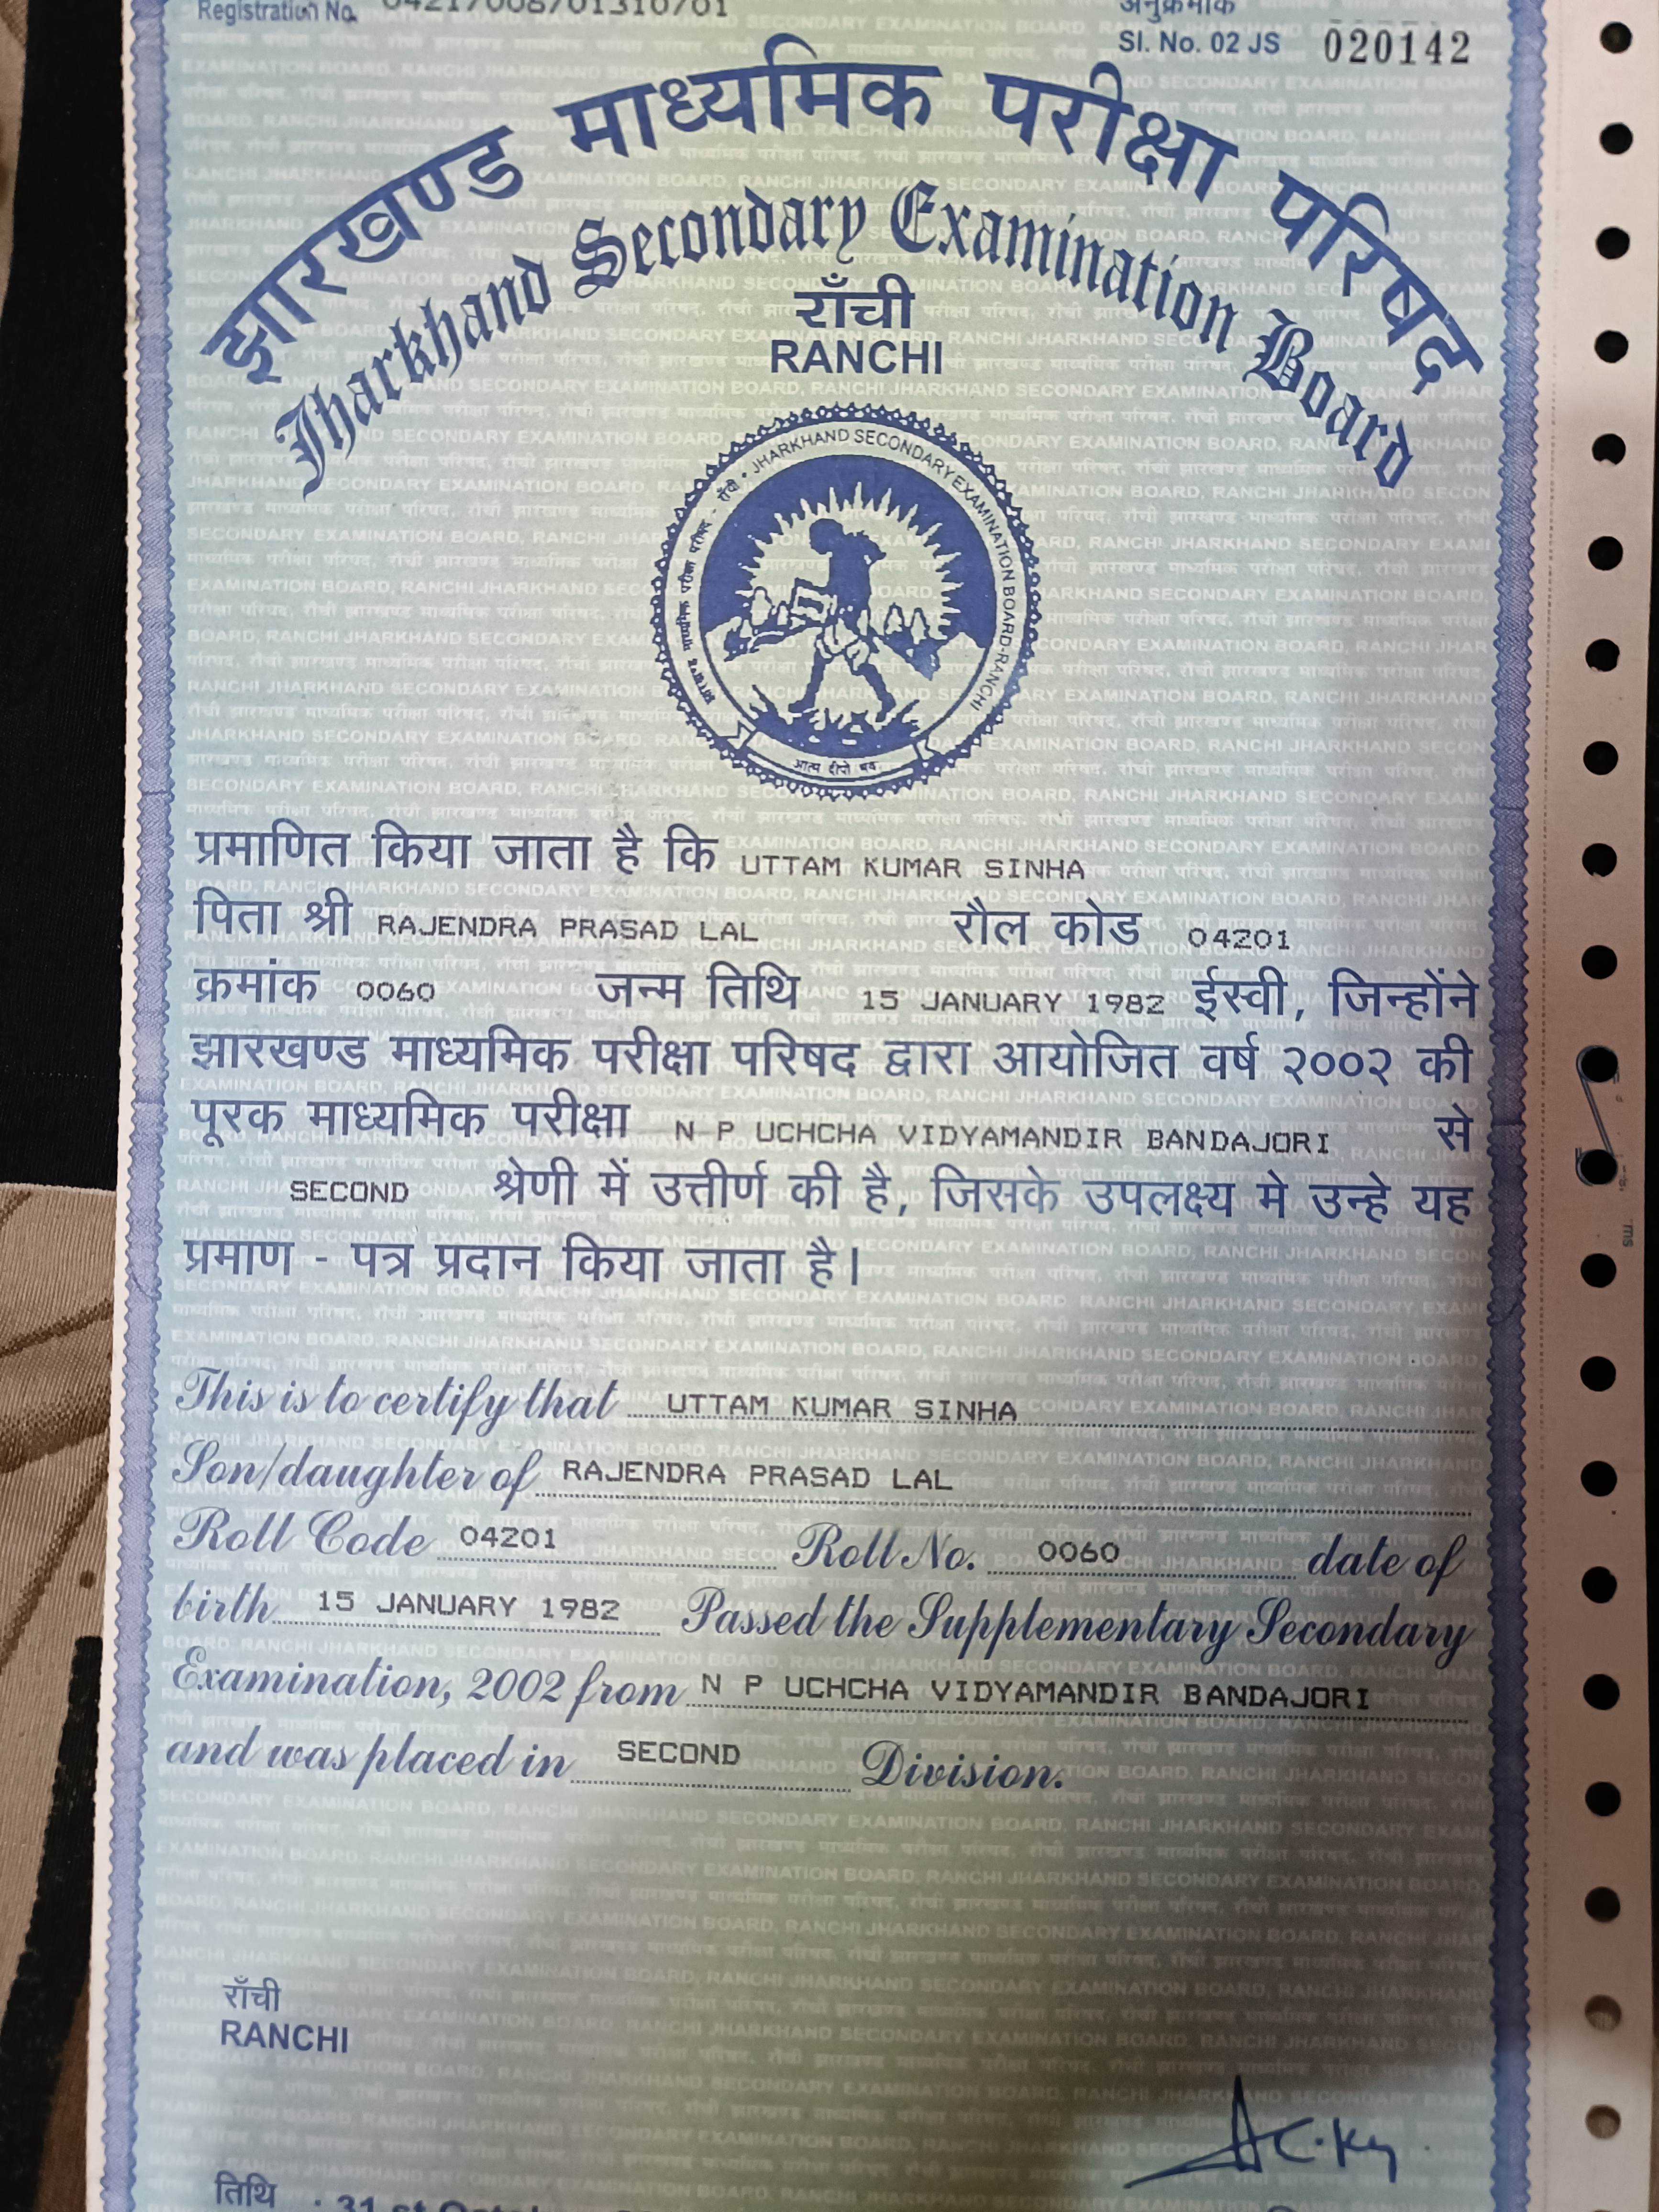 Registration No.
अनुक्रमांक
Sl. No. 02 JS 020142
झारखण्ड माध्यमिक परीक्षा परिषद
Jharkhand Secondary Examination Board
राँची
RANCHI
JHARKHAND SECONDARY EXAMINATION BOARD-RANCHI
प्रमाणित किया जाता है कि UTTAM KUMAR SINHA
पिता श्री RAJENDRA PRASAD LAL रौल कोड 04201
क्रमांक 0060 जन्म तिथि 15 JANUARY 1982 ईस्वी, जिन्होंने
झारखण्ड माध्यमिक परीक्षा परिषद द्वारा आयोजित वर्ष २००२ की
पूरक माध्यमिक परीक्षा N P UCHCHA VIDYAMANDIR BANDAJORI से
SECOND श्रेणी में उत्तीर्ण की है, जिसके उपलक्ष्य मे उन्हे यह
प्रमाण - पत्र प्रदान किया जाता है।
This is to certify that UTTAM KUMAR SINHA
Son/daughter of RAJENDRA PRASAD LAL
Roll Code 04201 Roll No. 0060 date of
birth 15 JANUARY 1982 Passed the Supplementary Secondary
Examination, 2002 from N P UCHCHA VIDYAMANDIR BANDAJORI
and was placed in SECOND Division.
राँची
RANCHI
तिथि